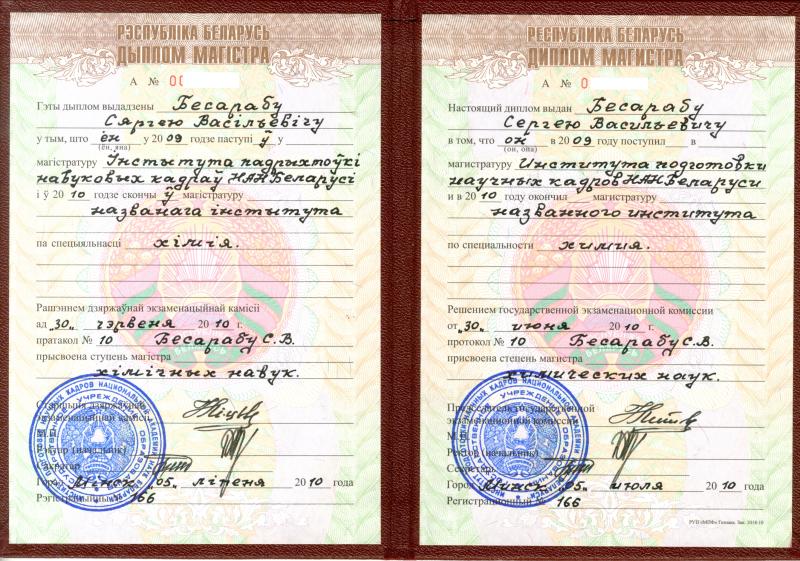 РЭСПУБЛІКА БЕЛАРУСЬ
ДЫПЛОМ МАГІСТРА
А № 00
Гэты дыплом выдадзены Бесарабу
Сяргею Васільевічу
у тым, што ён у 2009 годзе паступіў у
(ён, яна)
магістратуру Інстытута падрыхтоўкі
навуковых кадраў НАН Беларусі
і ў 2010 годзе скончыў магістратуру
названага інстытута
па спецыяльнасці хімія.
Рашэннем дзяржаўнай экзаменацыйнай камісіі
ад „30„ чэрвеня 2010 г.
пратакол № 10 Бесарабу С.В.
прысвоена ступень магістра
хімічных навук.
Старшыня дзяржаўнай
экзаменацыйнай камісіі
М.П.
Рэктар (начальнік)
Сакратар
Горад Мінск „05„ ліпеня 2010 года
Рэгістрацыйны № 166
РЕСПУБЛИКА БЕЛАРУСЬ
ДИПЛОМ МАГИСТРА
А № 0
Настоящий диплом выдан Бесарабу
Сергею Васильевичу
в том, что он в 2009 году поступил в
(он, она)
магистратуру Института подготовки
научных кадров НАН Беларуси
и в 2010 году окончил магистратуру
названного института
по специальности химия.
Решением государственной экзаменационной комиссии
от „30„ июня 2010 г.
протокол № 10 Бесарабу С.В.
присвоена степень магистра
химических наук.
Председатель государственной
экзаменационной комиссии
М.П.
Ректор (начальник)
Секретарь
Город Минск „05„ июля 2010 года
Регистрационный № 166